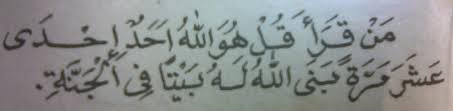 مَنْ قَرَأَ قُلْ هُوَ اللهُ اَحَدٌ اِحْدَى
عَشَرَ مَرَّةً بَنَى اللهُ لَهُ بَيْتًا فِى الْجَنَّةِ.